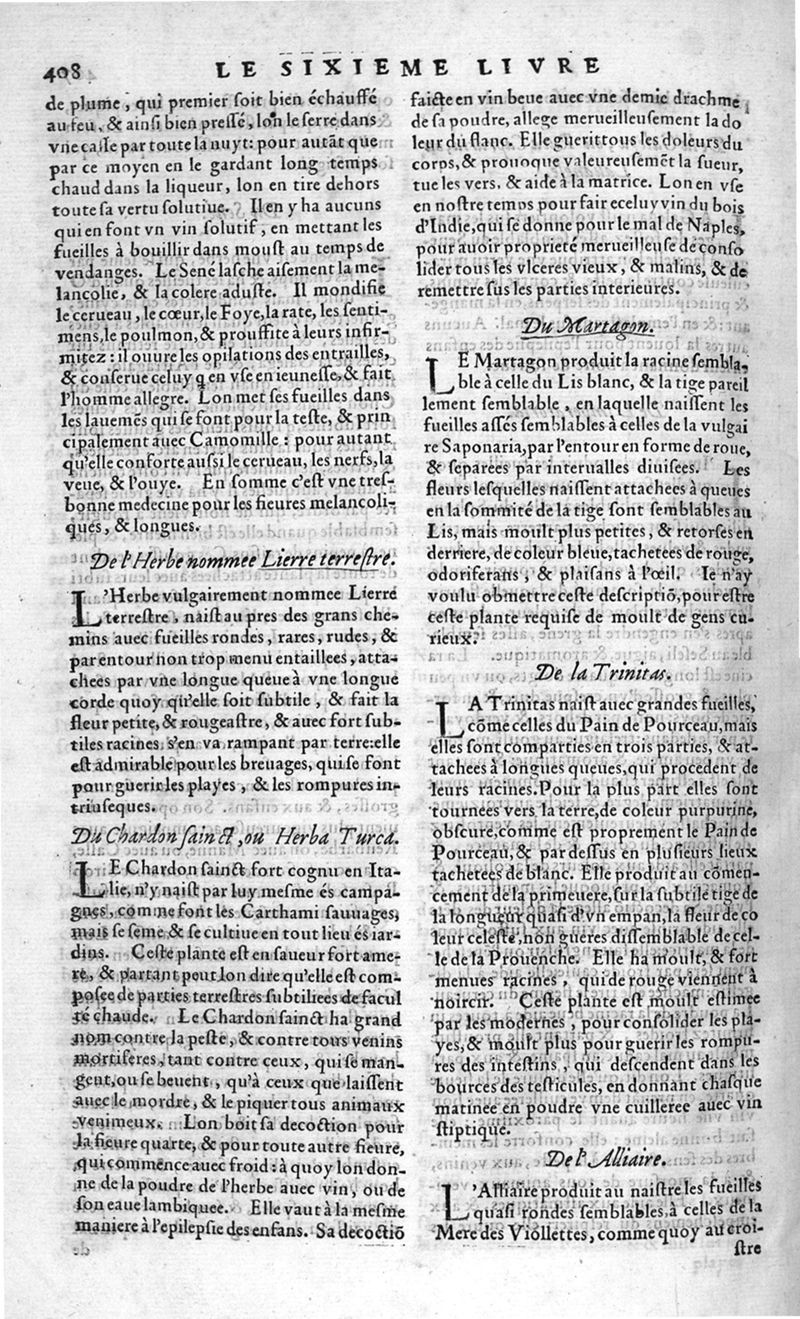 408
LE SIXIEME LIVRE
de plume, qui premier ſoit bien échauffé
au feu, & ainſi bien preſſé, lon le ſerre dans
vne caſſe par toute la nuyt: pour autāt que
par ce moyen en le gardant long temps
chaud dans la liqueur, lon en tire dehors
toute ſa vertu ſolutiue. Il en y ha aucuns
qui en font vn vin ſolutif, en mettant les
fueilles à bouillir dans mouſt au temps de
vendanges. Le Sené laſche aiſement la me-
lancolie, & la colere aduſte. Il mondifie
le cerueau, le cœur, le Foye, la rate, les ſenti-
mens, le poulmon, & prouffite à leurs infir-
mitez: il ouure les opilations des entrailles,
& conſerue celuy q̄ en vſe en ieuneſſe, & fait
l'homme allegre. Lon met ſes fueilles dans
les lauemēs qui ſe font pour la teſte, & prin
cipalement auec Camomille: pour autant
qu'elle conforte auſſi le cerueau, les nerfs, la
veuë, & l'ouye. En ſomme c'eſt vne treſ-
bonne medecine pour les fieures melancoli-
ques, & longues.
De l'Herbe nommee Lierre terreſtre.
L'Herbe vulgairement nommee Lierre
terreſtre, naiſt au pres des grans che-
mins auec fueilles rondes, rares, rudes, &
par entour non trop menu entaillees, atta-
chees par vne longue queue à vne longue
corde quoy qu'elle ſoit ſubtile, & fait la
fleur petite, & rougeaſtre, & auec fort ſub-
tiles racines s'en va rampant par terre: elle
eſt admirable pour les breuages, qui ſe font
pour guerir les playes, & les rompures in-
trinſeques.
Du Chardon ſainct, ou Herba Turca.
LE Chardon ſainct fort cognu en Ita-
lie, n'y naiſt par luy meſme és campa-
gnes, comme font les Carthami ſauuages,
mais ſe ſeme & ſe cultiue en tout lieu és iar-
dins. Ceſte plante eſt en ſaueur fort ame-
re, & partant peut lon dire qu'elle eſt com-
poſee de parties terreſtres ſubtiliees de facul
té chaude. Le Chardon ſainct ha grand
nom contre la peſte, & contre tous venins
mortiferes, tant contre ceux, qui ſe man-
gent, ou ſe beuent, qu'à ceux que laiſſent
auec le mordre, & le piquer tous animaux
venimeux. Lon boit ſa decoction pour
la fieure quarte, & pour toute autre fieure,
qui commence auec froid: à quoy lon don-
ne de la poudre de l'herbe auec vin, ou de
ſon eaue lambiquee. Elle vaut à la meſme
maniere à l'epilepſie des enfans. Sa decoctiō
faicte en vin beue auec vne demie drachme
de ſa poudre, allege merueilleuſement la do
leur du flanc. Elle guerit tous les doleurs du
corps, & prouoque valeureuſemēt la ſueur,
tue les vers, & aide à la matrice. Lon en vſe
en noſtre temps pour fair eceluy vin du bois
d'Indie, qui ſe donne pour le mal de Naples,
pour auoir proprieté merueilleuſe de conſo
lider tous les vlceres vieux, & malins, & de
remettre ſus les parties interieures.
Du Martagon.
LE Martagon produit la racine ſembla-
ble à celle du Lis blanc, & la tige pareil
lement ſemblable, en laquelle naiſſent les
fueilles aſſés ſemblables à celles de la vulgai
re Saponaria, par l'entour en forme de roue,
& ſeparees par interualles diuiſees. Les
fleurs leſquelles naiſſent attachees à queues
en la ſommité de la tige ſont ſemblables au
Lis, mais moult plus petites, & retorſes en
derriere, de coleur bleue, tachetees de rouge,
odoriferans, & plaiſans à l'œil. Ie n'ay
voulu obmettre ceſte deſcriptiō, pour eſtre
ceſte plante requiſe de moult de gens cu-
rieux.
De la Trinitas.
LA Trinitas naiſt auec grandes fueilles,
cōme celles du Pain de Pourceau, mais
elles ſont comparties en trois parties, & at-
tachees à longues queues, qui procedent de
leurs racines. Pour la plus part elles ſont
tournees vers la terre, de coleur purpurine,
obſcure, comme eſt proprement le Pain de
Pourceau, & par deſſus en pluſieurs lieux
tachetees de blanc. Elle produit au cōmen-
cement de la primeuere, ſur la ſubtile tige de
la longueur quaſi d'vn empan, la fleur de co
leur celeſte, non gueres diſſemblable de cel-
le de la Prouenche. Elle ha moult, & fort
menues racines, qui de rouge viennent à
noircir. Ceſte plante eſt moult eſtimee
par les modernes, pour conſolider les pla-
yes, & moult plus pour guerir les rompu-
res des inteſtins, qui deſcendent dans les
bources des teſticules, en donnant chaſque
matinee en poudre vne cuilleree auec vin
ſtiptique.
De l'Alliaire.
L'Alliaire produit au naiſtre les fueilles
quaſi rondes ſemblables à celles de la
Mere des Viollettes, comme quoy au croi-
ſtre